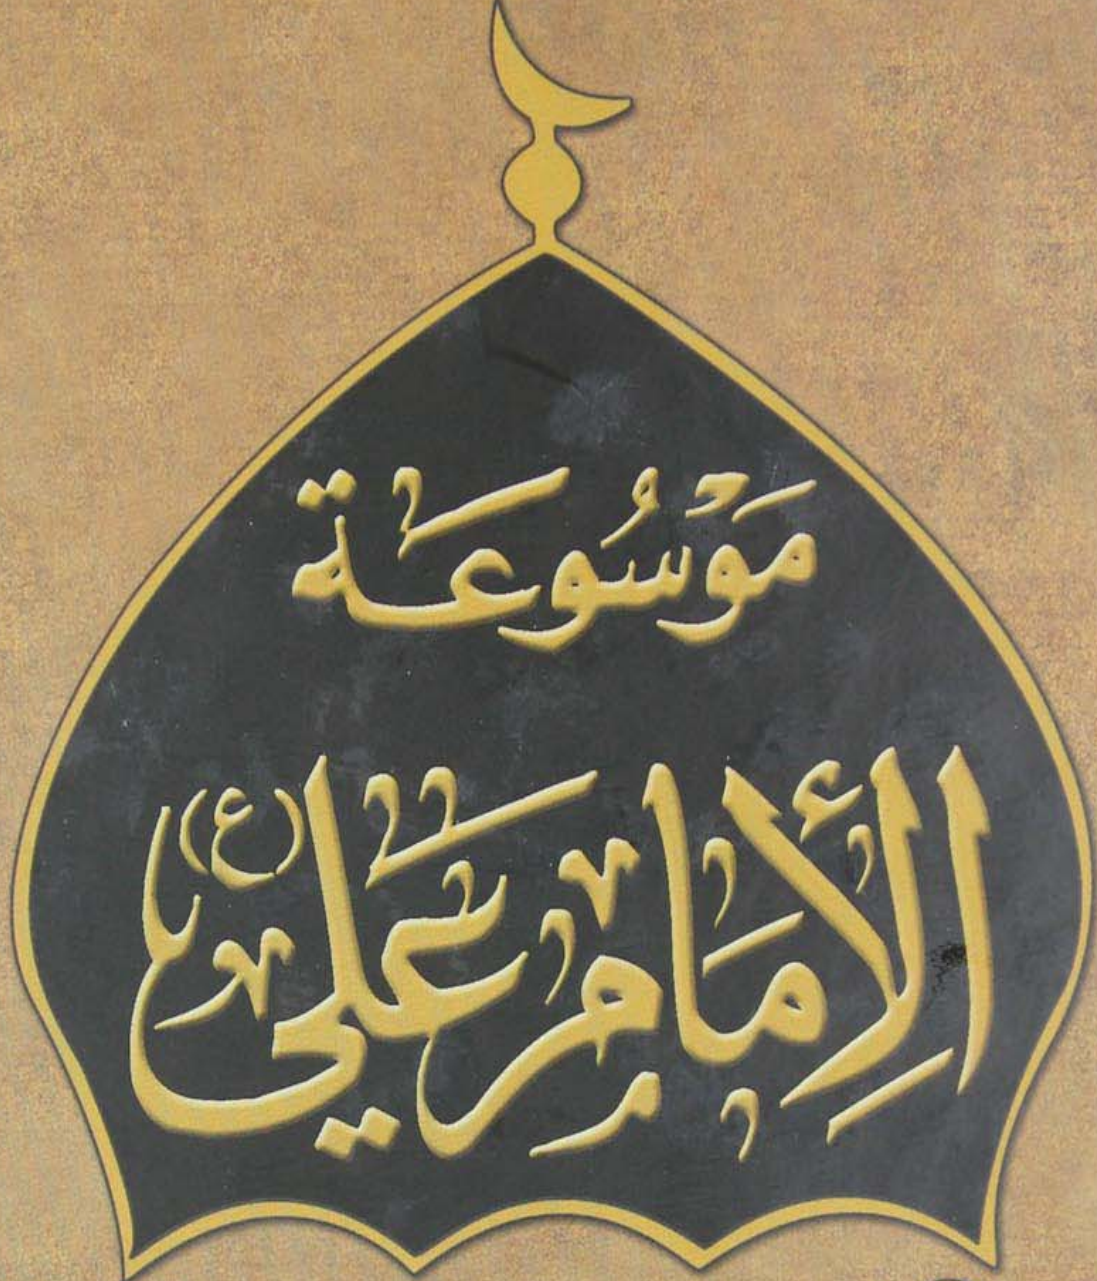 مَوْسُوعَة
الإمَام عَلي (ع)